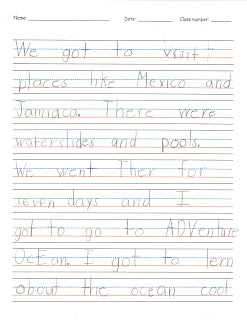 Name: Date: Class number:
We got to visit
places like Mexico and
Jamiaca. There were
waterslides and pools.
We went Ther for
seven days and I
got to go to ADVenture
OcEan. I got to lern
about the ocean cool